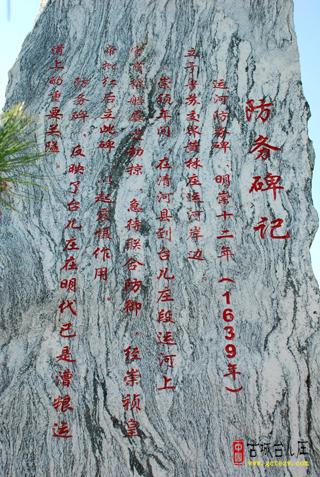 防务碑记
运河防务碑，明崇十二年（1639年）
立于鲁苏交界黄林庄运河岸边
崇祯年间，在清河县到台儿庄段运河上
官商粮船屡遭劫掠，急待联合防御，经崇祯皇
帝批红后立此碑，以起震慑作用。
防务碑，反映了台儿庄在明代已是漕粮运
道上的重要关隘。
中国 古城台儿庄